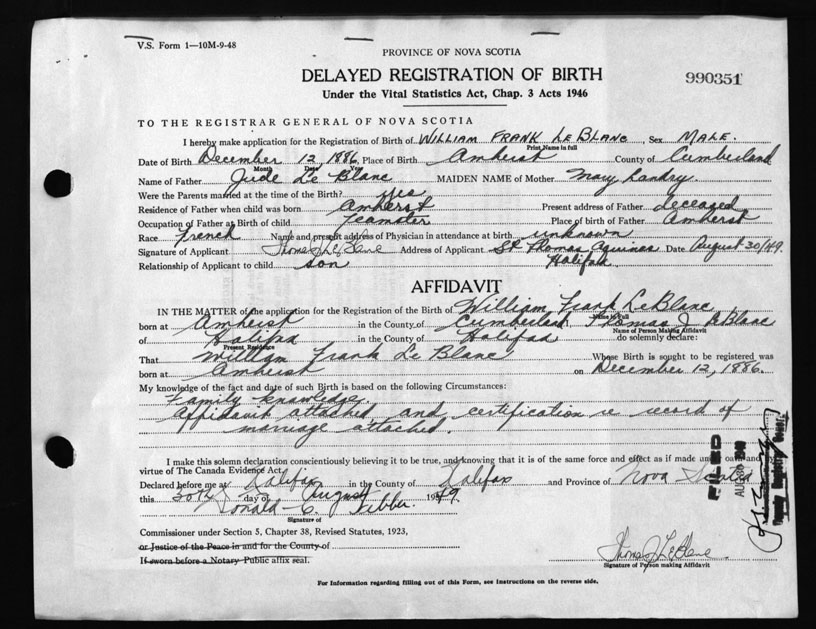 V.S. Form 1—10M-9-48
PROVINCE OF NOVA SCOTIA
DELAYED REGISTRATION OF BIRTH
990351
Under the Vital Statistics Act, Chap. 3 Acts 1946
TO THE REGISTRAR GENERAL OF NOVA SCOTIA
I hereby make application for the Registration of Birth of WILLIAM FRANK LE BLANC, Sex MALE.
Print Name in full
Date of Birth December 12, 1886, Place of Birth Amherst County of Cumberland
Month Date Year
Name of Father Jude Le Blanc MAIDEN NAME of Mother Mary Landry.
Were the Parents married at the time of the Birth? yes
Residence of Father when child was born Amherst Present address of Father deceased
Occupation of Father at Birth of child Teamster Place of birth of Father Amherst
Race French Name and present address of Physician in attendance at birth unknown
Signature of Applicant Thomas J LeBlanc Address of Applicant St Thomas Aquinas Date August 30/49.
Relationship of Applicant to child son Halifax.
AFFIDAVIT
IN THE MATTER of the application for the Registration of the Birth of William Frank LeBlanc
Name in Full
born at Amherst in the County of Cumberland. Thomas J LeBlanc
Name of Person Making Affidavit
of Halifax in the County of Halifax do solemnly declare:
Present Residence
That William Frank Le Blanc Whose Birth is sought to be registered was
born at Amherst on December 12, 1886.
My knowledge of the fact and date of such Birth is based on the following Circumstances:
Family knowledge.
Affidavit attached and certification re record of
marriage attached.
I make this solemn declaration conscientiously believing it to be true, and knowing that it is of the same force and effect as if made under oath and
virtue of The Canada Evidence Act.
Declared before me at Halifax in the County of Halifax and Province of Nova Scotia
this 30th day of August 1949.
Ronald C.
Signature of
Commissioner under Section 5, Chapter 38, Revised Statutes, 1923,
or Justice of the Peace in and for the County of
If sworn before a Notary Public affix seal.
Thomas J LeBlanc
Signature of Person making Affidavit
FILED
Deputy Registrar General
For Information regarding filling out of this Form, see Instructions on the reverse side.